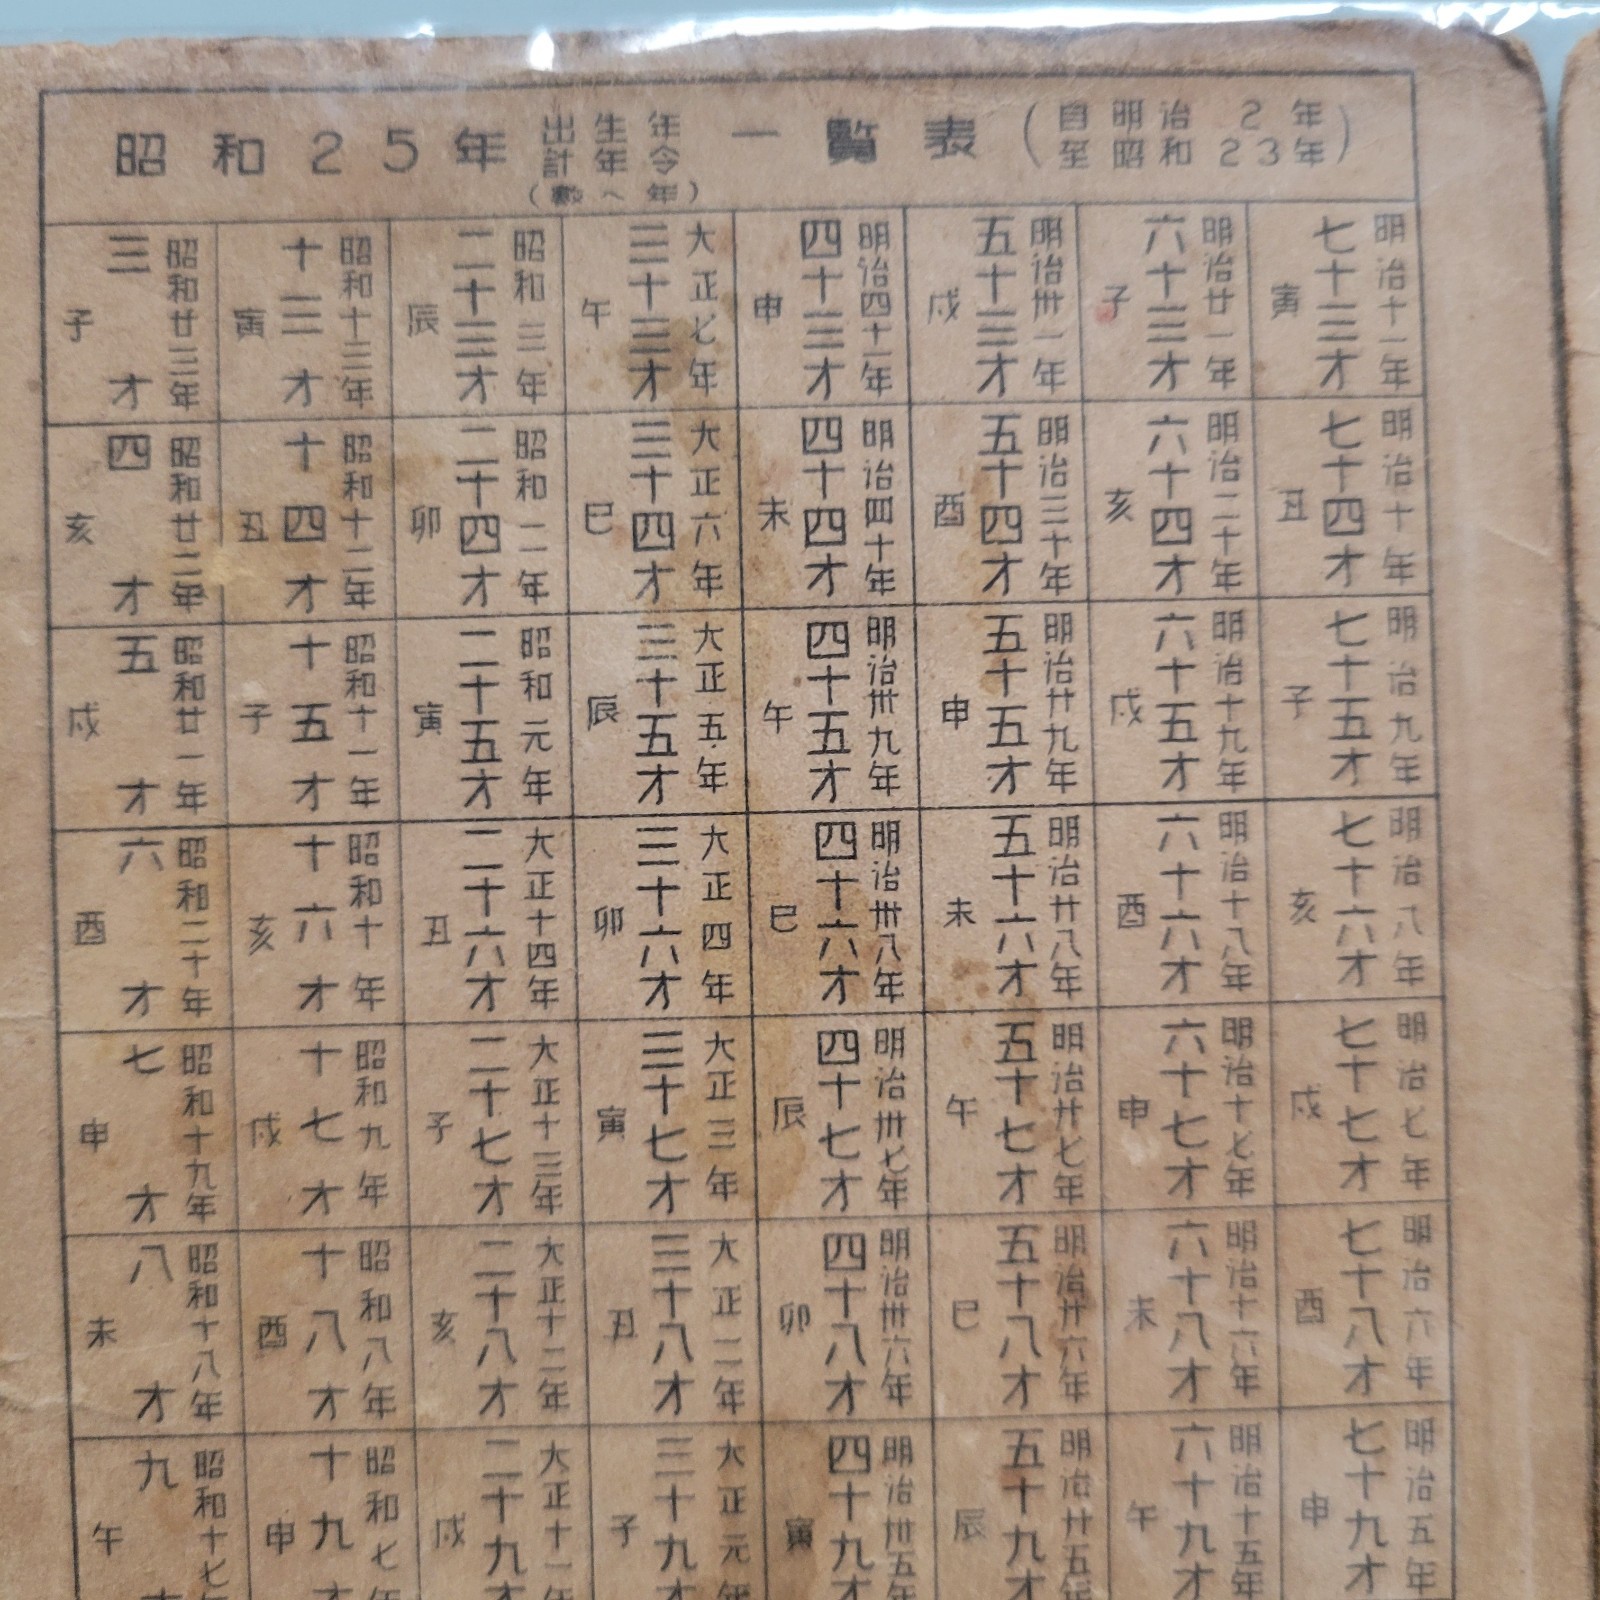 昭和25年 出生年 一覧表 (自明治2年
計年令 至昭和23年)
(数へ年)
明治十一年 七十三才 寅
明治廿一年 六十三才 子
明治卅一年 五十三才 戌
明治四十一年 四十三才 申
大正七年 三十三才 午
昭和三年 二十三才 辰
昭和十三年 十三才 寅
昭和廿三年 三才 子
明治十年 七十四才 丑
明治二十年 六十四才 亥
明治三十年 五十四才 酉
明治四十年 四十四才 未
大正六年 三十四才 巳
昭和二年 二十四才 卯
昭和十二年 十四才 丑
昭和廿二年 四才 亥
明治九年 七十五才 子
明治十九年 六十五才 戌
明治廿九年 五十五才 申
明治卅九年 四十五才 午
大正五年 三十五才 辰
昭和元年 二十五才 寅
昭和十一年 十五才 子
昭和廿一年 五才 戌
明治八年 七十六才 亥
明治十八年 六十六才 酉
明治廿八年 五十六才 未
明治卅八年 四十六才 巳
大正四年 三十六才 卯
大正十四年 二十六才 丑
昭和十年 十六才 亥
昭和二十年 六才 酉
明治七年 七十七才 戌
明治十七年 六十七才 申
明治廿七年 五十七才 午
明治卅七年 四十七才 辰
大正三年 三十七才 寅
大正十三年 二十七才 子
昭和九年 十七才 戌
昭和十九年 七才 申
明治六年 七十八才 酉
明治十六年 六十八才 未
明治廿六年 五十八才 巳
明治卅六年 四十八才 卯
大正二年 三十八才 丑
大正十二年 二十八才 亥
昭和八年 十八才 酉
昭和十八年 八才 未
明治五年 七十九才 申
明治十五年 六十九才 午
明治廿五年 五十九才 辰
明治卅五年 四十九才 寅
大正元年 三十九才 子
大正十一年 二十九才 戌
昭和七年 十九才 申
昭和十七年 九 午